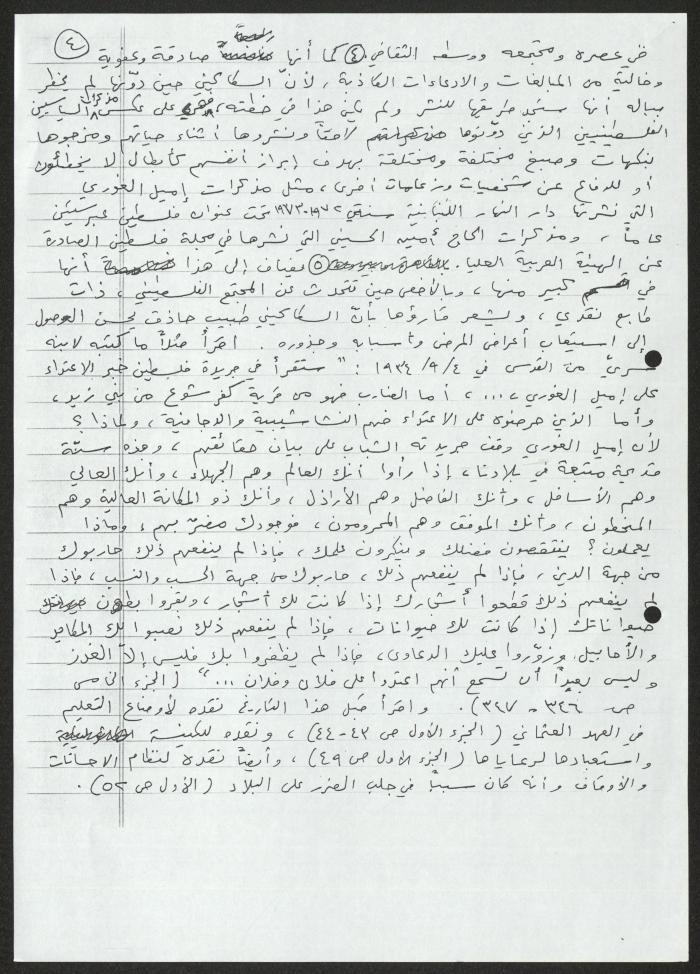 ٤
في عصره ومجتمعه ووسطه الثقافي. ④ كما أنها صادقة وعفوية
وخالية من المبالغات والادعاءات الكاذبة، لأنّ السكاكيني حين دوّنها لم يخطر
بباله أنها ستجد طريقها للنشر ولم يكن هذا في خطته، على عكس مذكرات السياسيين
الفلسطينيين الذين دوّنوها لاحقاً ونشروها أثناء حياتهم ومزجوها
بنكهات وصبغ مختلفة ومختلقة بهدف إبراز أنفسهم كأبطال لا يخطئون
أو للدفاع عن شخصيات وزعامات أخرى، مثل مذكرات إميل الغوري
التي نشرتها دار النهار اللبنانية سنتي ١٩٧٢-١٩٧٣ تحت عنوان فلسطين عبر ستين
عاماً، ومذكرات الحاج أمين الحسيني التي نشرها في مجلة فلسطين الصادرة
عن الهيئة العربية العليا. ⑤ يضاف إلى هذا أنها
في قسم كبير منها، وبالأخص حين تتحدث عن المجتمع الفلسطيني، ذات
طابع نقدي، ويشعر قارؤها بأنّ السكاكيني طبيب حاذق يحسن الوصول
إلى استيعاب أعراض المرض وأسبابه وجذوره. اقرأ مثلاً ما كتبه لابنه
سريّ من القدس في ٤/٩/١٩٣٤: "ستقرأ في جريدة فلسطين خبر الاعتداء
على إميل الغوري، ...، أما الضارب فهو من قرية كفر شوع من بني زيد،
وأما الذين حرضوه على الاعتداء فهم النشاشيبية والدجانية، ولماذا؟
لأن إميل الغوري وقف جريدته الشباب على بيان حقائقهم، وهذه سنّة
قديمة متبعة في بلادنا، إذا رأوا أنك العالم وهم الجهلاء، وأنك العالي
وهم الأسافل، وأنك الفاضل وهم الأراذل، وأنك ذو المكانة العالية وهم
المنحطون، وأنك الموفق وهم المحرومون، فوجودك مضرّ بهم، وماذا
يعملون؟ ينتقصون فضلك وينكرون علمك، فإذا لم ينفعهم ذلك حاربوك
من جهة الدين، فإذا لم ينفعهم ذلك، حاربوك من جهة الحسب والنسب، فإذا
لم ينفعهم ذلك قطعوا أشجارك إذا كانت لك أشجار، وبقروا بطون
حيواناتك إذا كانت لك حيوانات، فإذا لم ينفعهم ذلك نصبوا لك المكايد
والأحابيل وزوّروا عليك الدعاوى، فإذا لم يظفروا بك فليس إلاّ الغدر
وليس بعيداً أن تسمع أنهم اعتدوا على فلان وفلان ..." (الجزء الخامس
ص ٣٢٦ - ٣٢٧). واقرأ قبل هذا التاريخ نقده لأوضاع التعليم
في العهد العثماني (الجزء الأول ص ٤٣-٤٤)، ونقده للكنيسة
واستعبادها لرعاياها (الجزء الاول ص ٤٩)، وأيضاً نقده لنظام الاحسانات
والأوقاف وأنه كان سبباً في جلب الضرر على البلاد (الأول ص ٥٢).